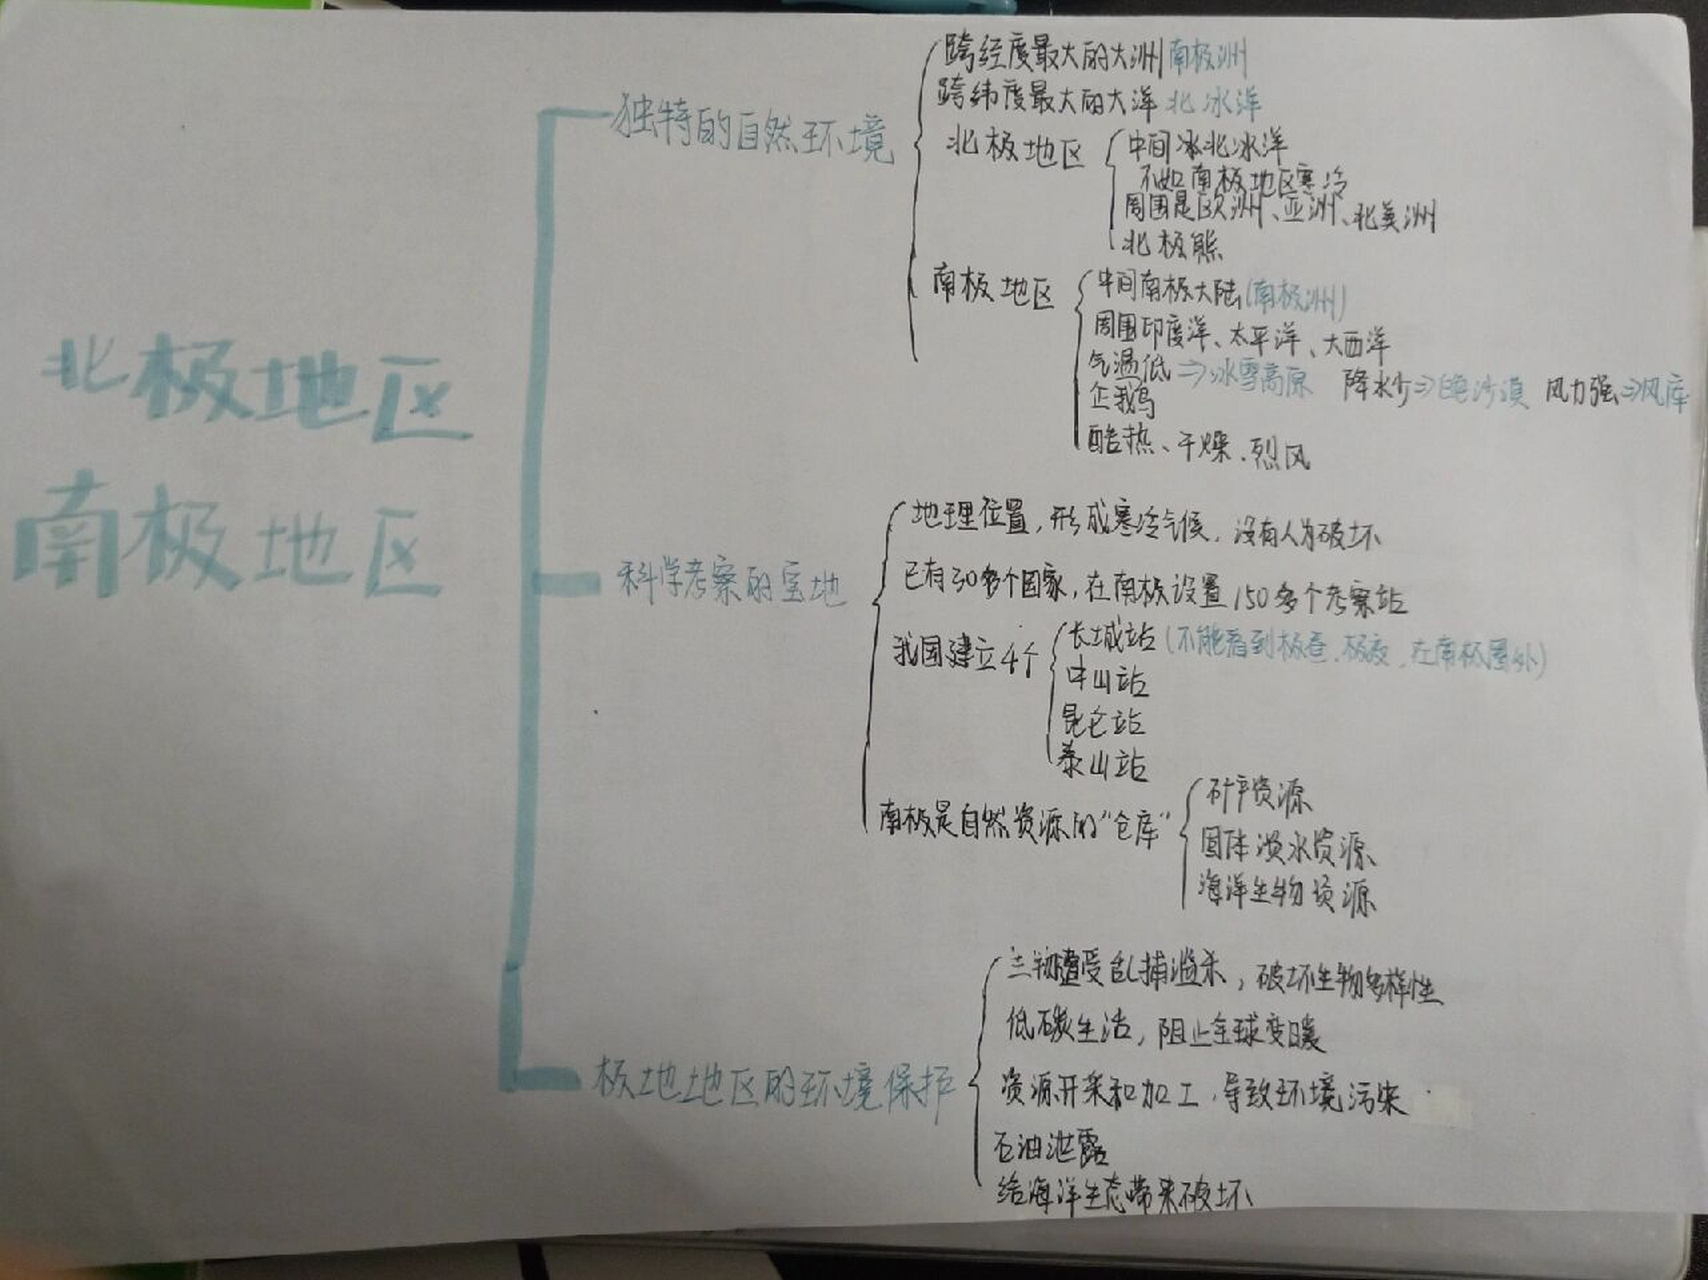 北极地区
南极地区
独特的自然环境
跨经度最大的大洲 南极洲
跨纬度最大的大洋 北冰洋
北极地区
中间 北冰洋
不如南极地区寒冷
周围是欧洲、亚洲、北美洲
北极熊
南极地区
中间南极大陆(南极洲)
周围印度洋、太平洋、大西洋
气温低⇒冰雪高原 降水少⇒白色沙漠 风力强⇒风库
企鹅
酷热、干燥、烈风
科学考察的宝地
地理位置,形成寒冷气候,没有人为破坏
已有30多个国家,在南极设置150多个考察站
我国建立4个
长城站(不能看到极昼、极夜,在南极圈外)
中山站
昆仑站
泰山站
南极是自然资源的“仓库”
矿产资源
固体淡水资源
海洋生物资源
极地地区的环境保护
物遭受乱捕滥杀,破坏生物多样性
低碳生活,阻止全球变暖
资源开采和加工,导致环境污染
石油泄露
给海洋生态带来破坏